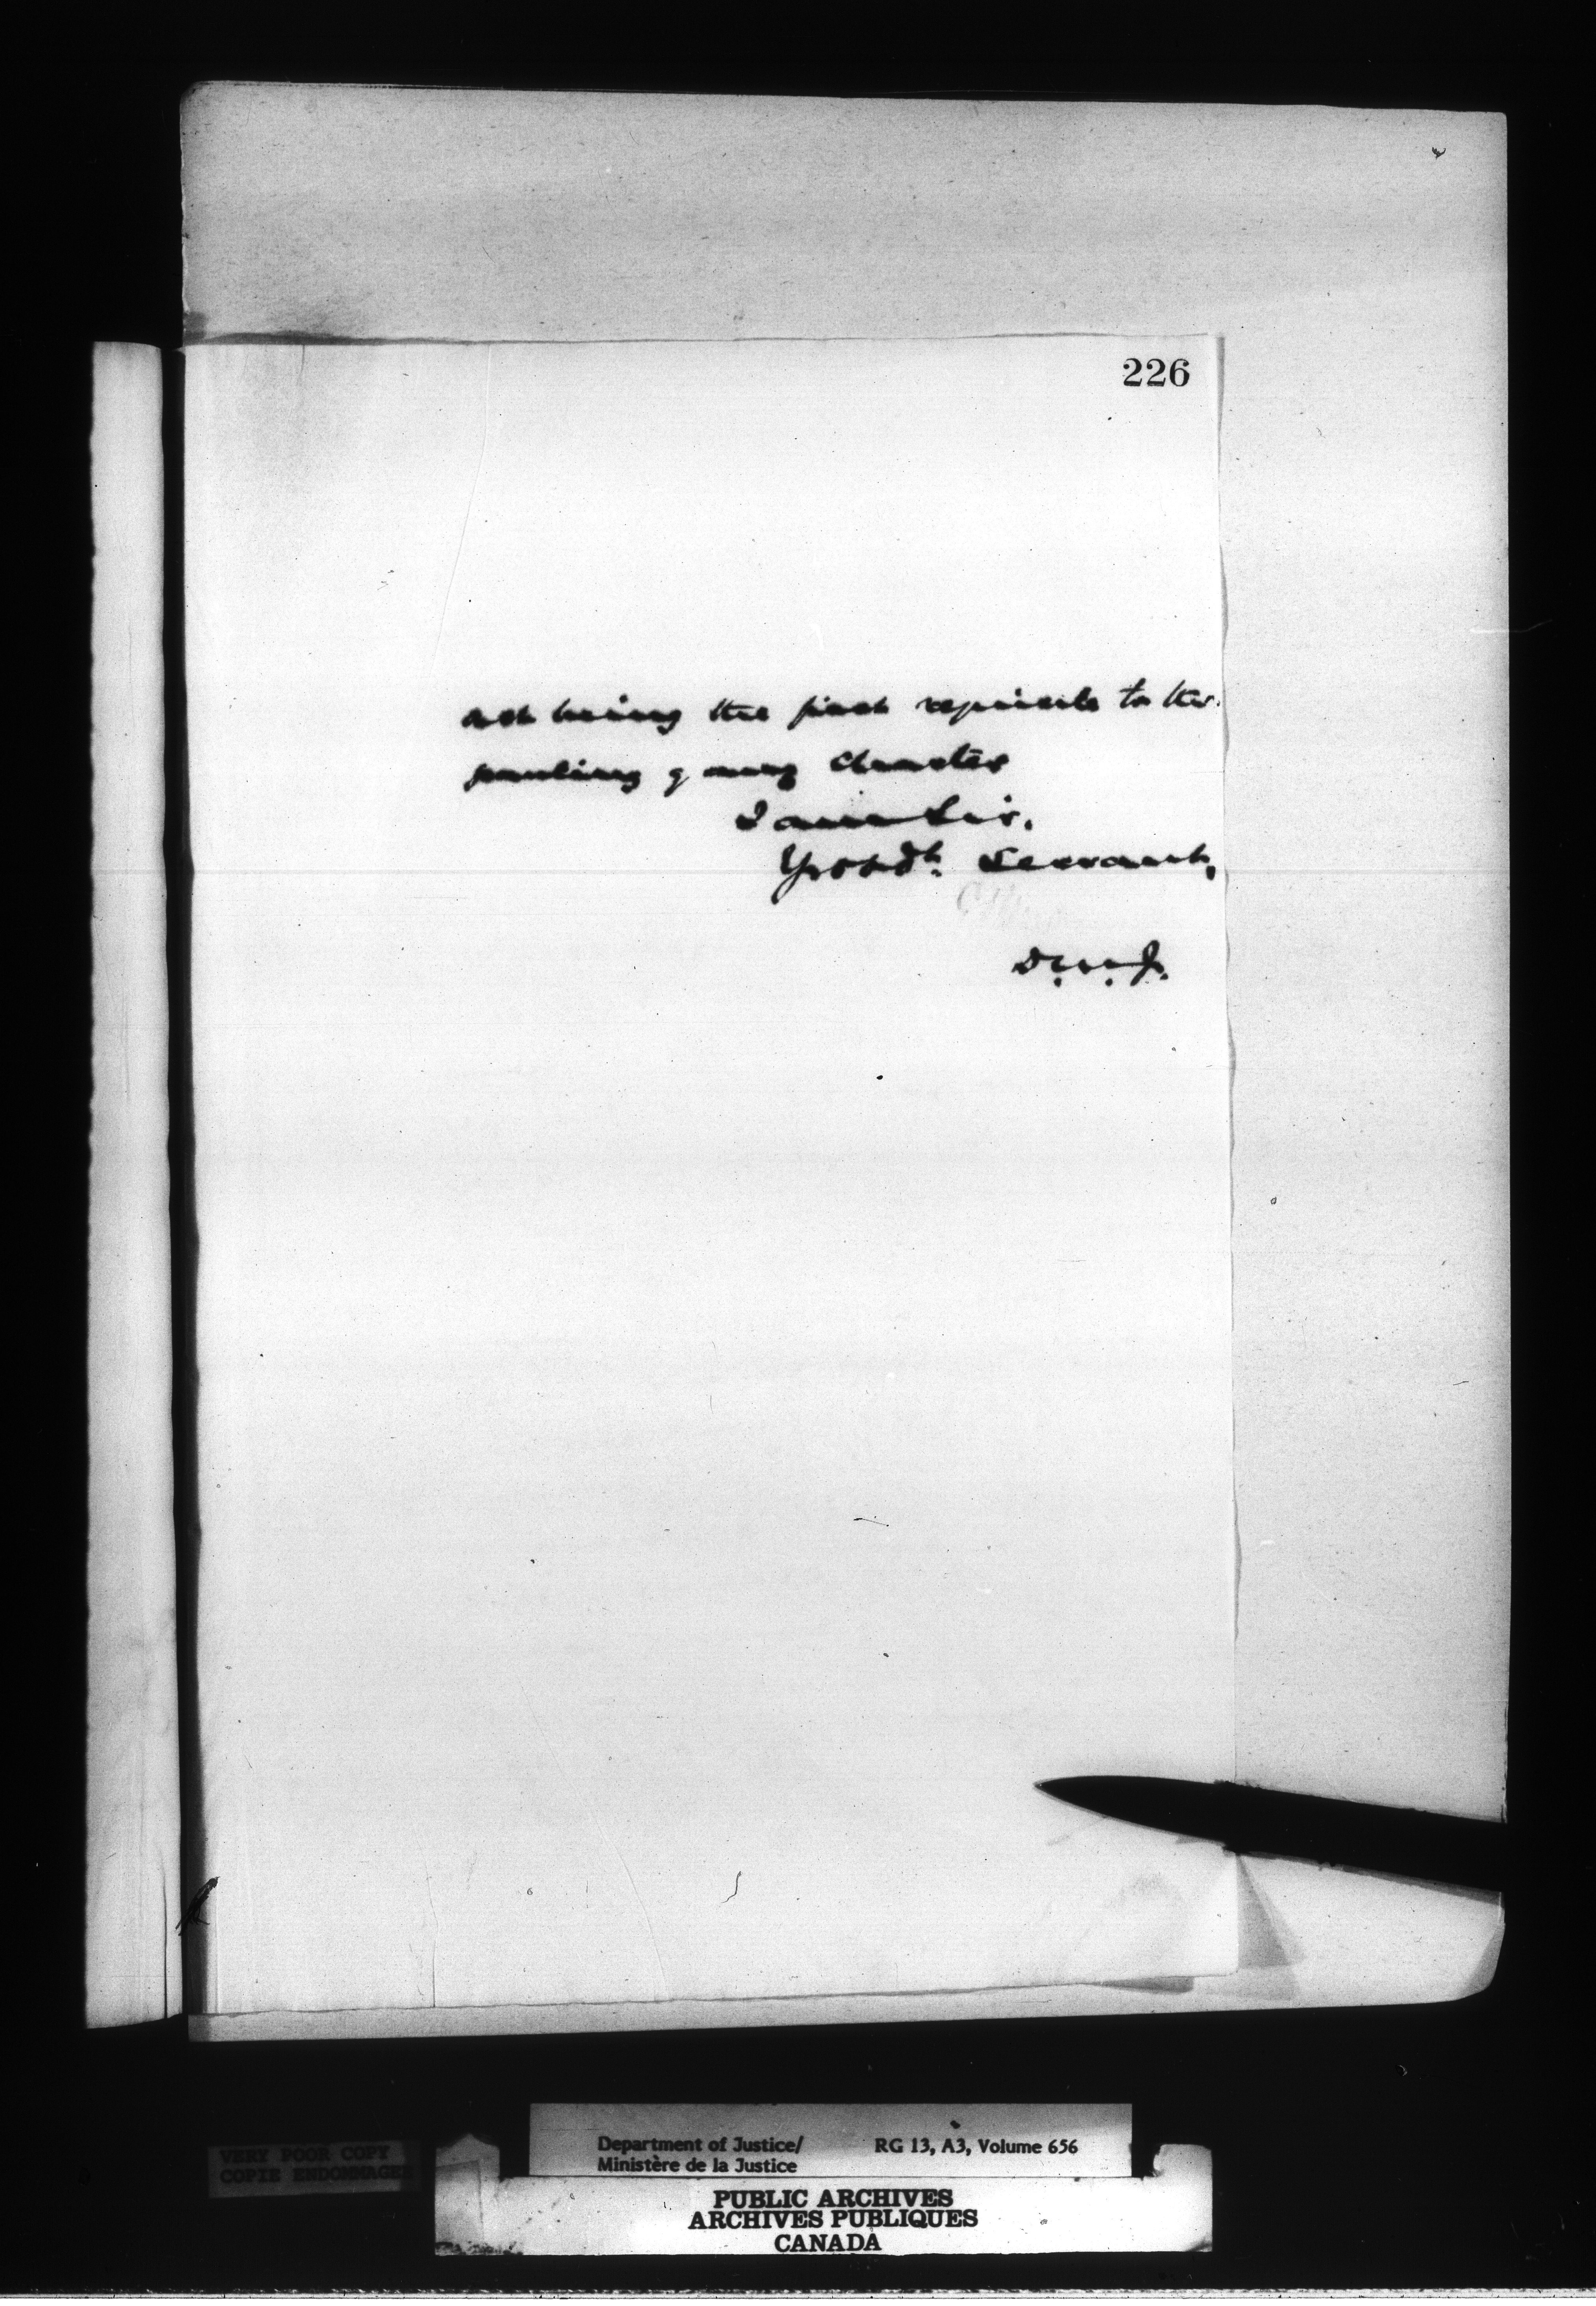 226
not being the first requisite to the
granting of any charter
I am Sir,
Yr obdt. Servant,
D.M.J.
VERY POOR COPY
COPIE ENDOMMAGEE
Department of Justice/
Ministère de la Justice
RG 13, A3, Volume 656
PUBLIC ARCHIVES
ARCHIVES PUBLIQUES
CANADA